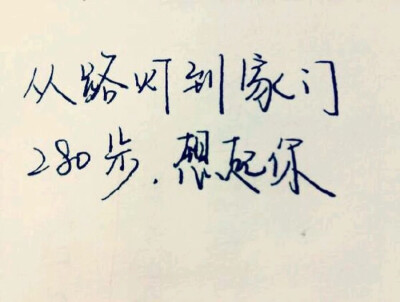 从路灯到家门
280步.想起你